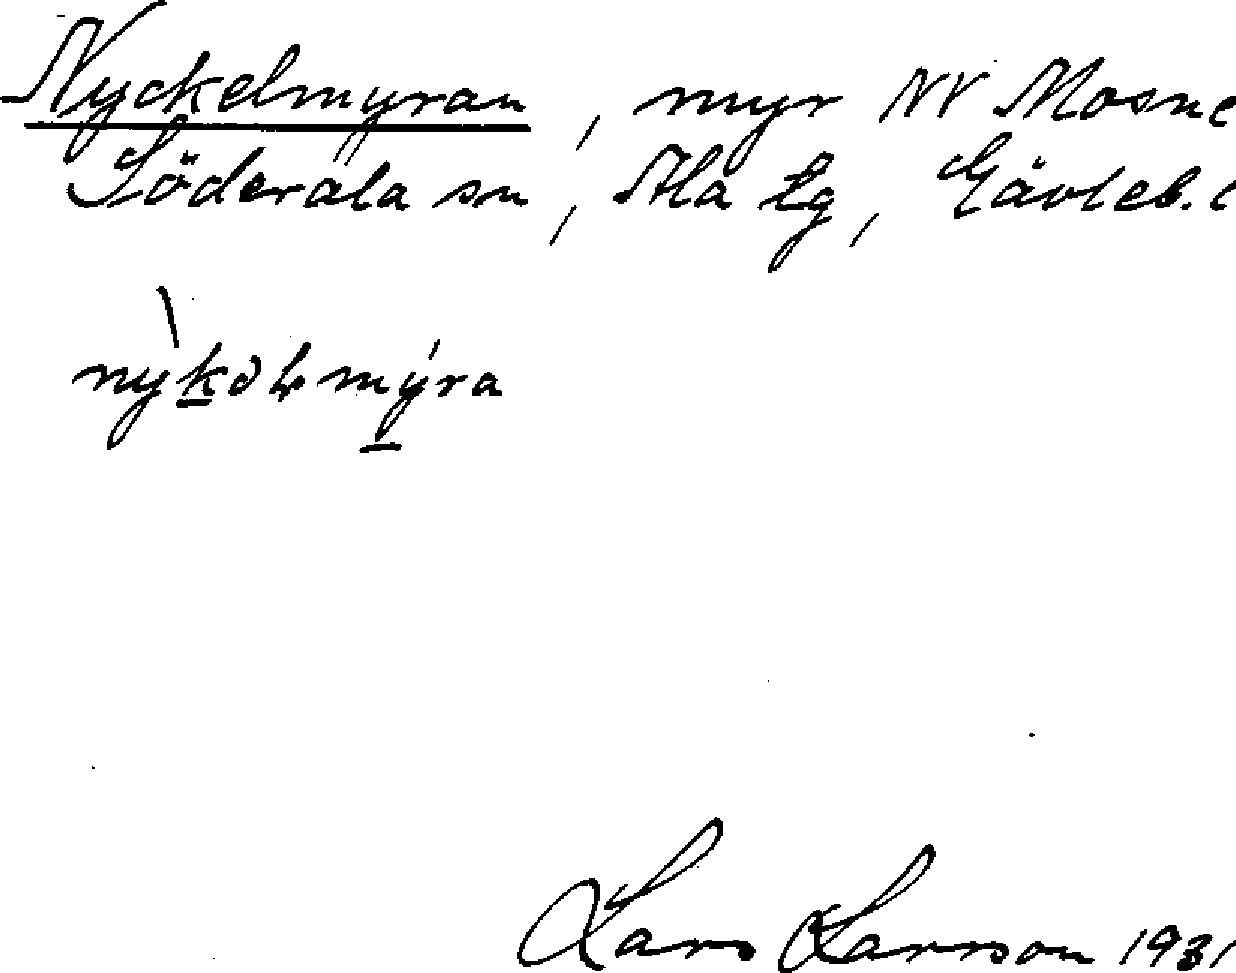 Nyckelmyran, myr NV Mosne
Söderala sn, Ala tg, Gävleb. l
Lars Larsson 1931